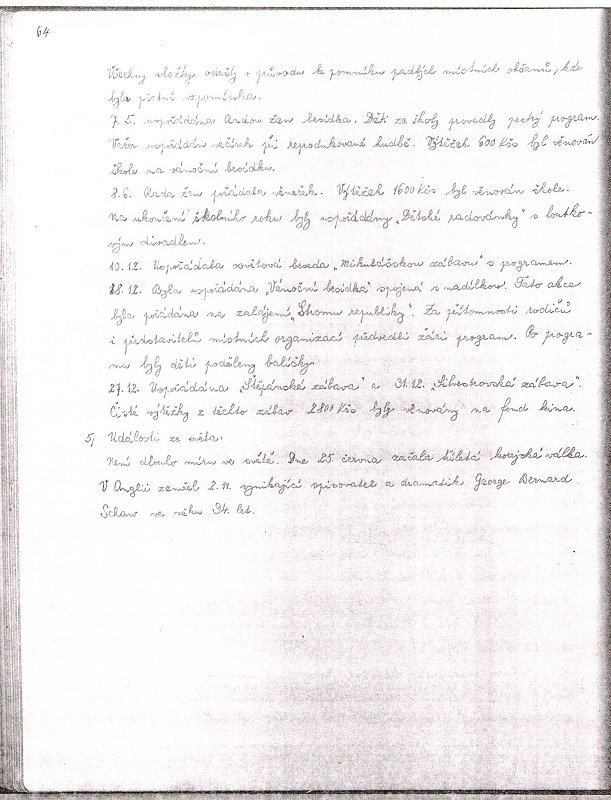 64
Všechny složky odešly v průvodu k pomníku padlých místních občanů, kde
byla pietní vzpomínka.
7.5. uspořádána Radou žen besídka. Děti ze školy provedly pestrý program.
Večer uspořádán večírek při reprodukované hudbě. Výtěžek 600 Kčs byl věnován
škole na vánoční besídku.
8.6. Rada žen pořádala věneček. Výtěžek 1600 Kčs byl věnován škole.
Na ukončení školního roku byly uspořádány „Dětské radovánky“ s loutko-
vým divadlem.
10.12. Uspořádala osvětová beseda „Mikulášskou zábavu“ s programem.
18.12. Byla uspořádána „Vánoční besídka“ spojená s nadílkou. Tato akce
byla pořádána na zahájení „Stromu republiky“. Za přítomnosti rodičů
i představitelů místních organizací předvedli žáci program. Po progra-
mu byly děti poděleny balíčky.
27.12. Uspořádána „Štěpánská zábava“ a 31.12. „Silvestrovská zábava“.
Čisté výtěžky z těchto zábav 2800 Kčs byly věnovány na fond kina.
5, Události ze světa.
Není dlouho míru ve světě. Dne 25. června začala korejská válka.
V Anglii zemřel 2.11. vynikající spisovatel a dramatik George Bernard
Schaw ve věku 94. let.